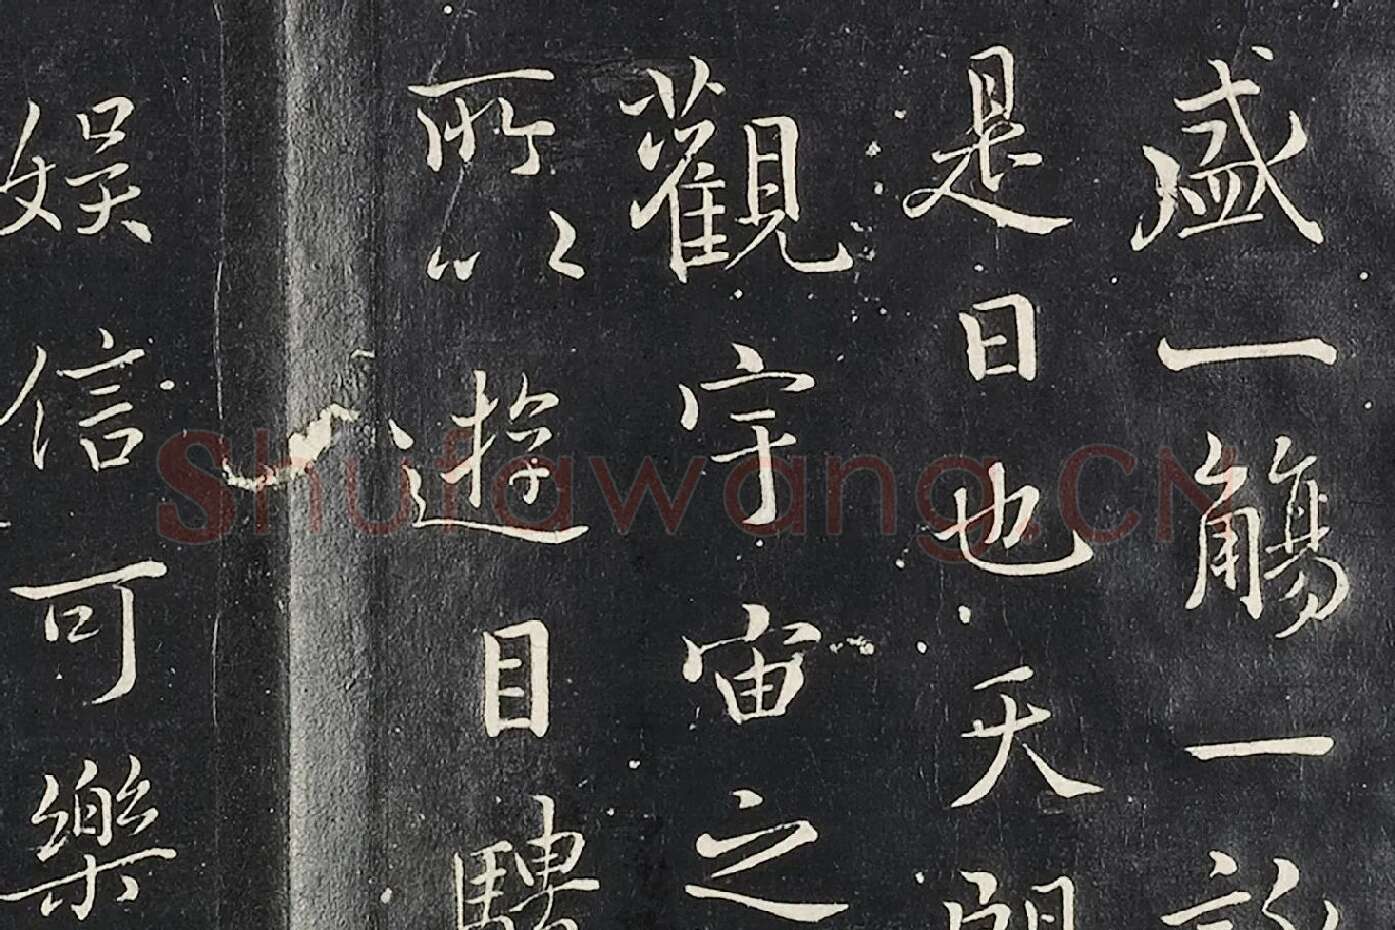 盛一觴一詠
是日也天朗
觀宇宙之
所以遊目騁
娛信可樂
Shufawang.CN